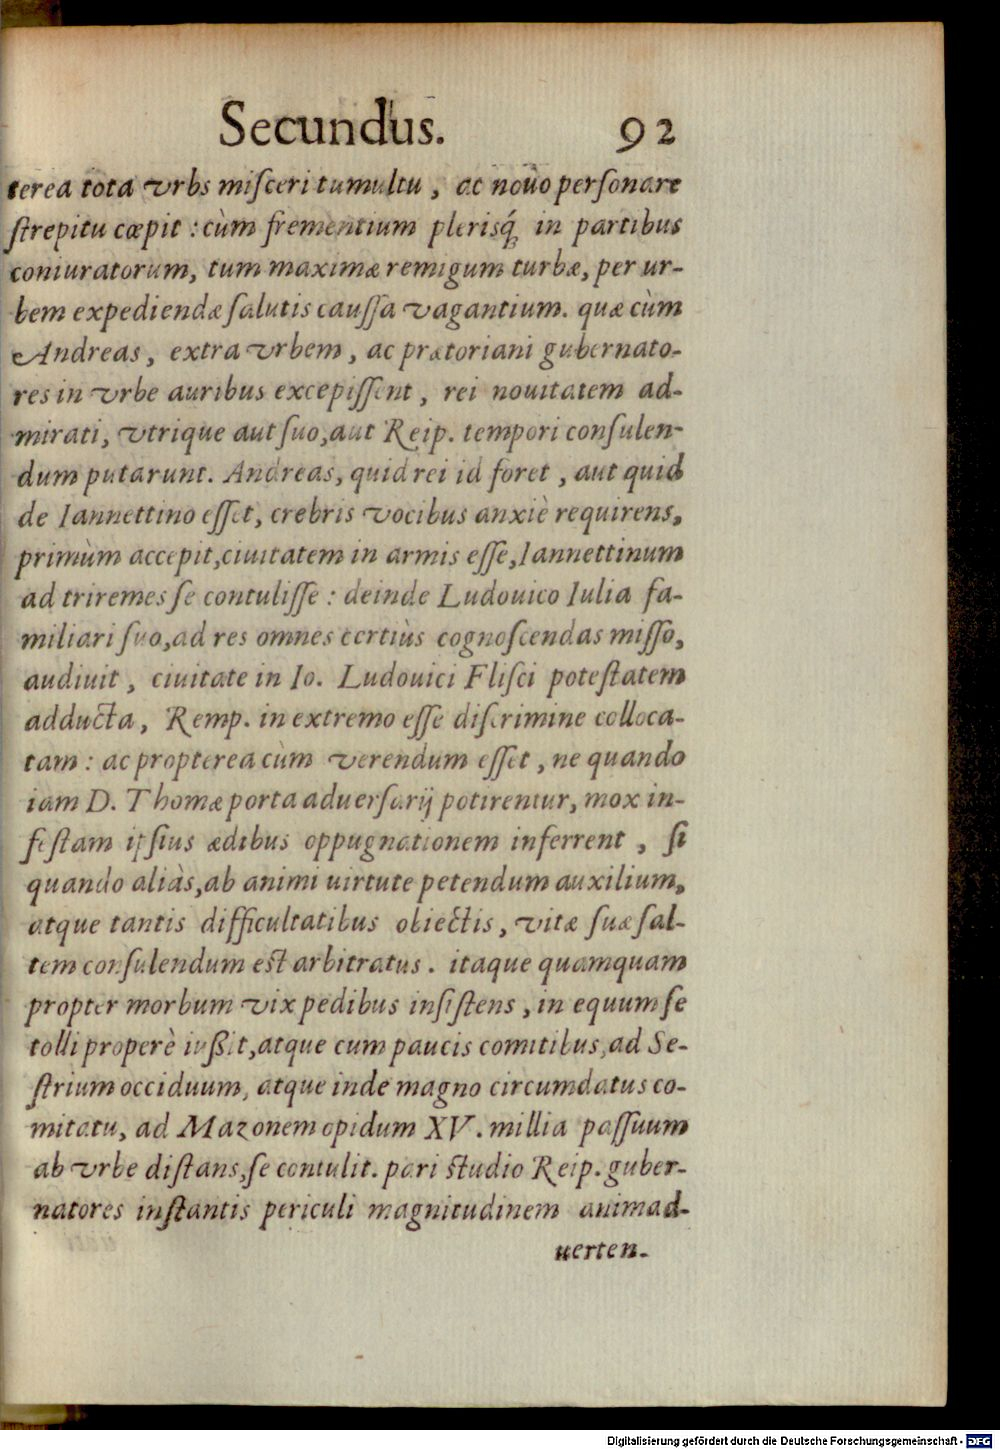 Secundus. 92
terea tota vrbs misceri tumultu, ac nouo personare
strepitu cœpit: cùm frementium plerisq́; in partibus
coniuratorum, tum maximæ remigum turbæ, per ur-
bem expediendæ salutis caussa vagantium. quæ cùm
Andreas, extra vrbem, ac prætoriani gubernato-
res in vrbe auribus excepissent, rei nouitatem ad-
mirati, vtrique aut suo, aut Reip. tempori consulen-
dum putarunt. Andreas, quid rei id foret, aut quid
de Iannettino esset, crebris vocibus anxiè requirens,
primùm accepit, ciuitatem in armis esse, Iannettinum
ad triremes se contulisse: deinde Ludouico Iulia fa-
miliari suo, ad res omnes certiùs cognoscendas misso,
audiuit, ciuitate in Io. Ludouici Flisci potestatem
adducta, Remp. in extremo esse discrimine colloca-
tam: ac propterea cùm verendum esset, ne quando
iam D. Thomæ porta aduersarij potirentur, mox in-
festam ipsius ædibus oppugnationem inferrent, si
quando aliàs, ab animi uirtute petendum auxilium,
atque tantis difficultatibus obiectis, vitæ suæ sal-
tem consulendum est arbitratus. itaque quamquam
propter morbum vix pedibus insistens, in equum se
tolli properè iußit, atque cum paucis comitibus, ad Se-
strium occiduum, atque inde magno circumdatus co-
mitatu, ad Mazonem opidum XV. millia passuum
ab vrbe distans, se contulit. pari studio Reip. guber-
natores instantis periculi magnitudinem animad-
uerten-
Digitalisierung gefördert durch die Deutsche Forschungsgemeinschaft - DFG